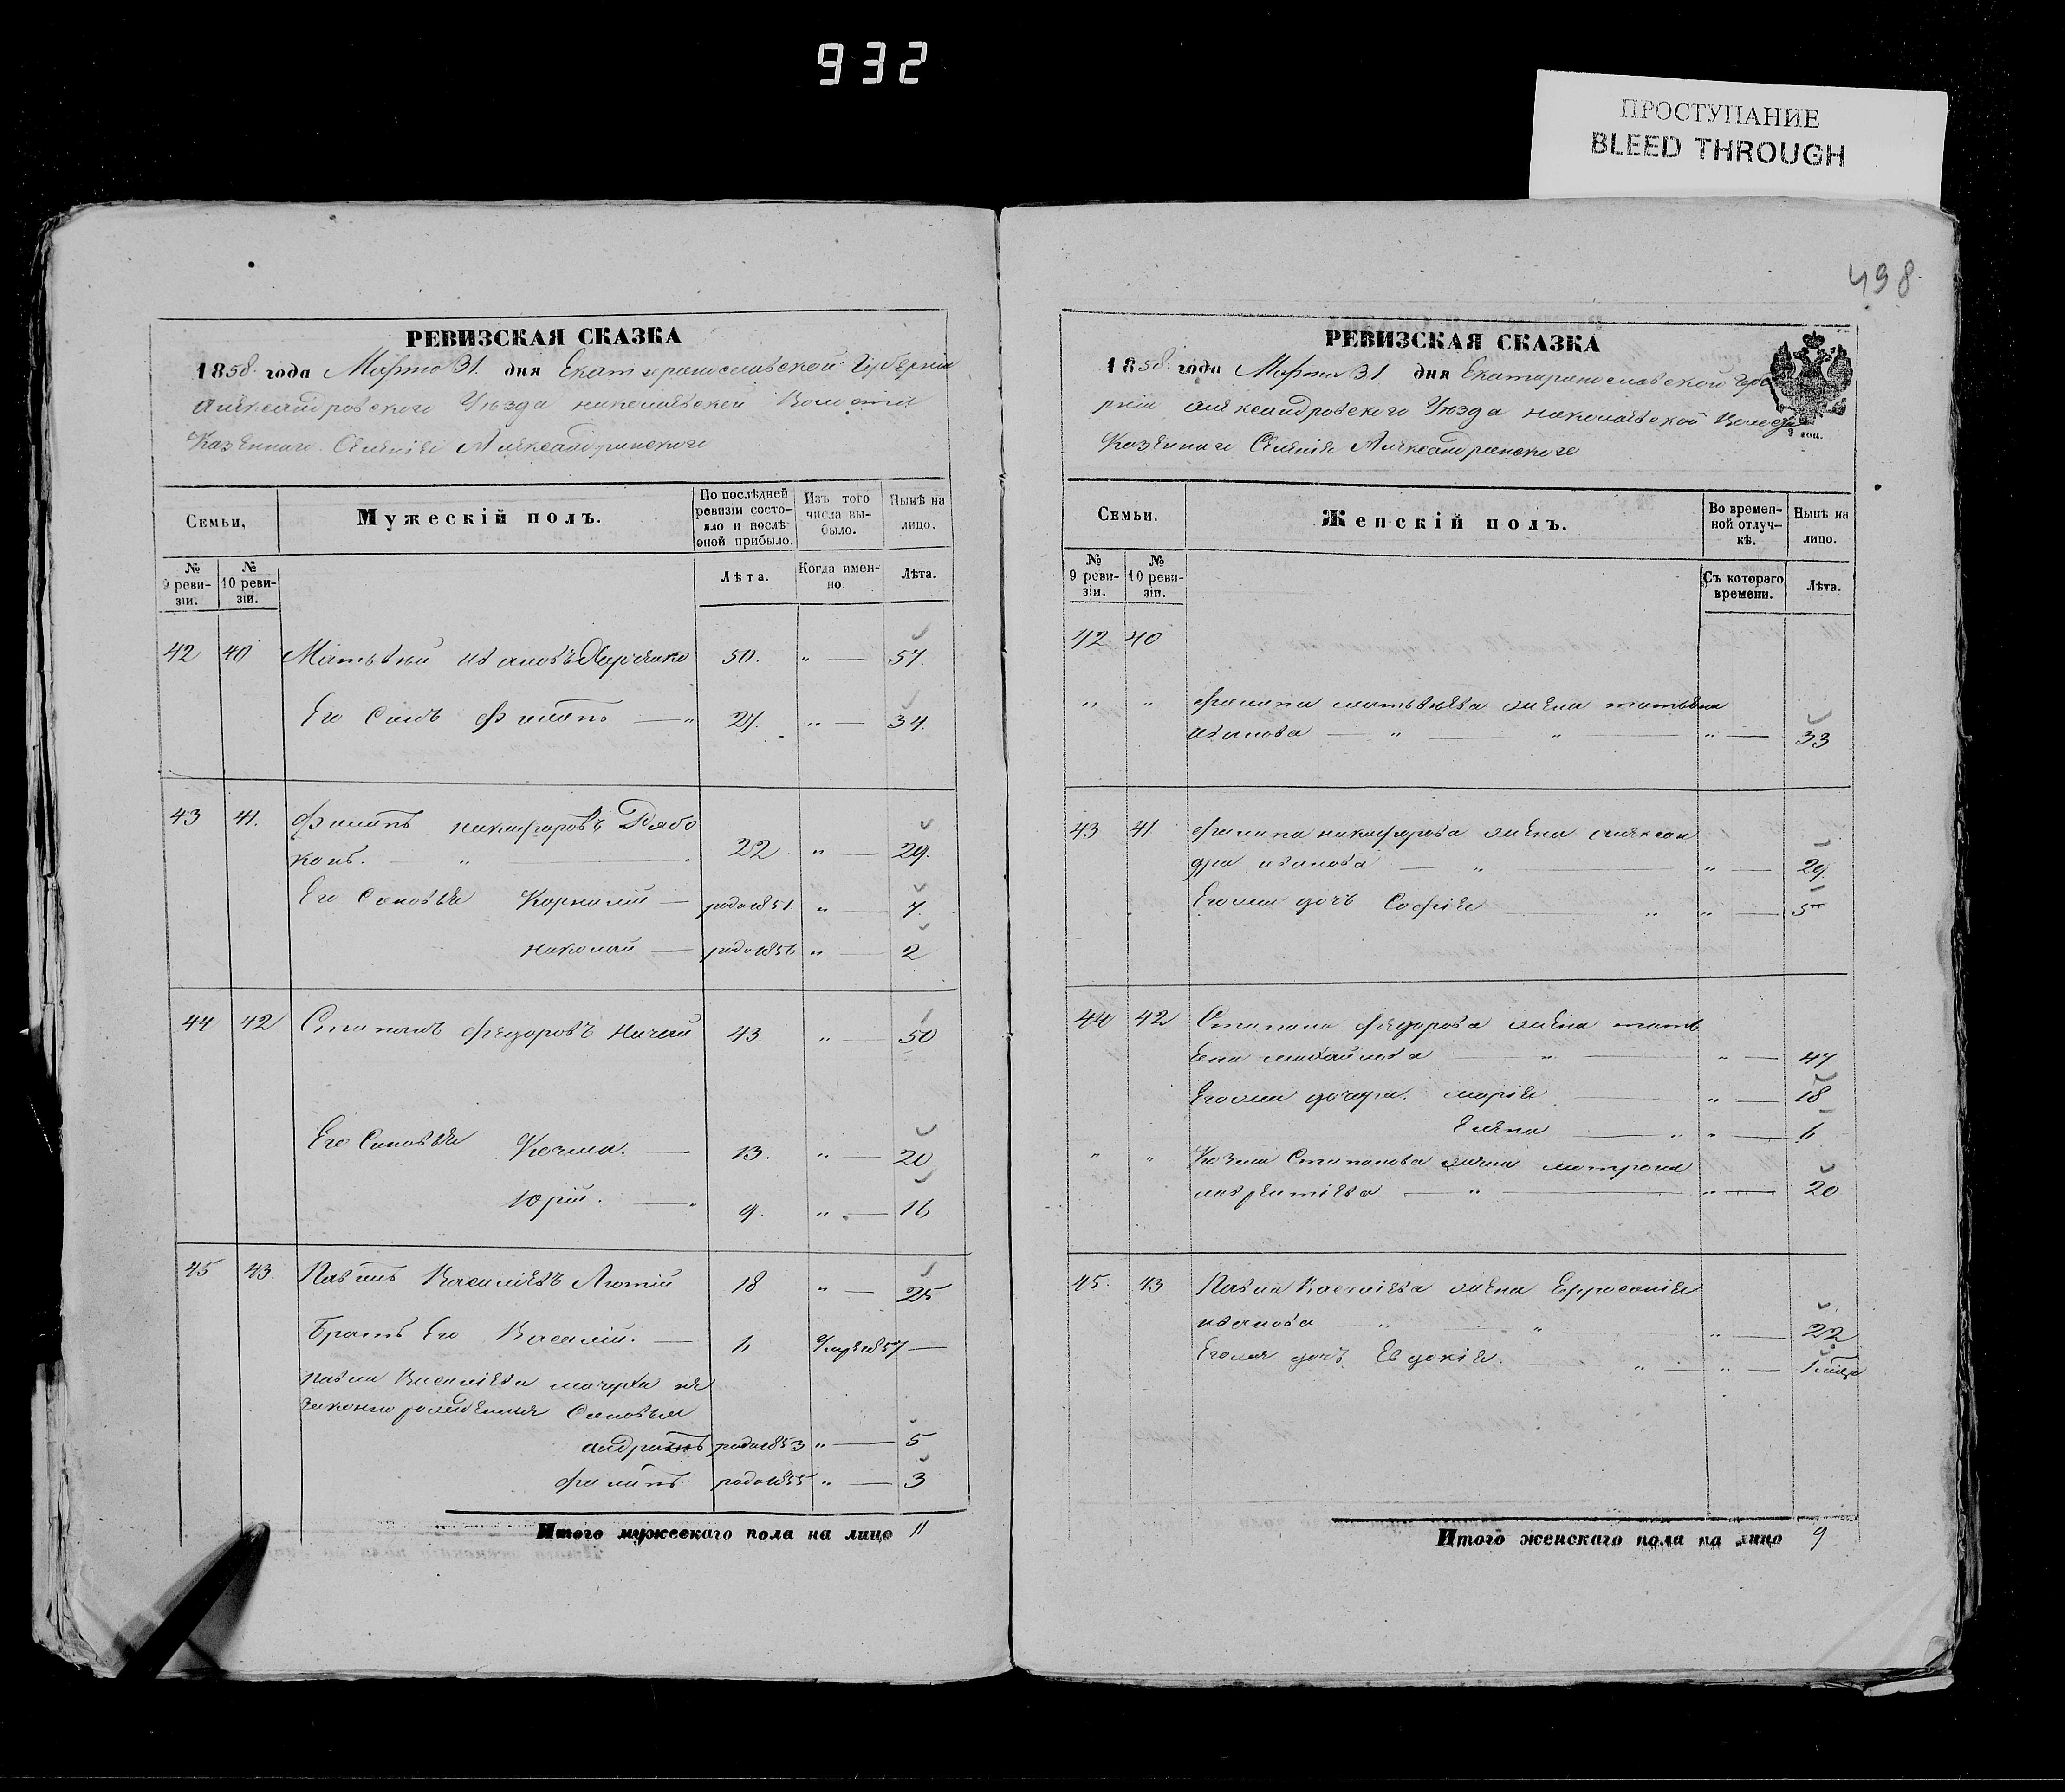 932
ПРОСТУПАНИЕ
BLEED THROUGH
498
РЕВИЗСКАЯ СКАЗКА
1858 года Марта 31 дня Екатеринославской Губернии
Александровского Уѣзда Николаевской Волости
Казенного Селенiя Александринского
Семьи,
Мужескiй полъ.
По послѣдней ревизiи состояло и послѣ оной прибыло.
Изъ того числа выбыло.
Нынѣ на лицо.
№ 9 ревизiи.
№ 10 ревизiи.
Лѣта.
Когда именно.
Лѣта.
42 40 Матвѣй Ивановъ 50. „ — 57
Его Сынъ Филипъ — „ 27. „ — 34.
43 41. Филипъ Никифоровъ Рябо
конь. — „ — 22 „ — 29.
Его Сыновья Корнилiй — родо 1851 „ — 7.
Николай — родо 1856 „ — 2
44 42 Степанъ Федоровъ 43 „ — 50
Его Сыновья Козма. — 13. „ — 20
Юрiй. — 9. „ — 16
45 43. Павелъ Васильевъ Лютiй 18 „ — 25
Братъ Его Василiй. — 11 1857 —
Павла Васильева мачехи не
законно рожденныя Сыновья
Андрей родо 1853 „ — 5
Филипъ родо 1855 „ — 3
Итого мужескаго пола на лицо 11
РЕВИЗСКАЯ СКАЗКА
1858 года Марта 31 дня Екатеринославской Губе
рнiи Александровского Уѣзда Николаевской
Казенного Селенiя Александринского
Семьи.
Женскiй полъ.
Во временной отлучкѣ.
Нынѣ на лицо.
№ 9 ревизiи.
№ 10 ревизiи.
Съ котораго времени.
Лѣта.
42 40
„ „ Филипа Матвѣева жена Татьяна
Иванова — „ — „ — „ — 33
43 41 Филипа Никифорова жена Алексан
дра Иванова — „ — „ — 29
Его же дочь Софiя — „ „ — 5
44 42 Степана Федорова жена Тать
яна Михайлова — „ — „ — 47
Его же дочери. Марiя — „ — 18
Елена — „ „ — 6
„ „ Козма Степанова жена Матрона
Лаврентiева — „ — „ — 20
45. 43 Павла Васильева жена Ефросинiя
Иванова — „ — „ „ — 22
Его же дочь Евдокiя. — „ — „ —
Итого женскаго пола на лицо 9